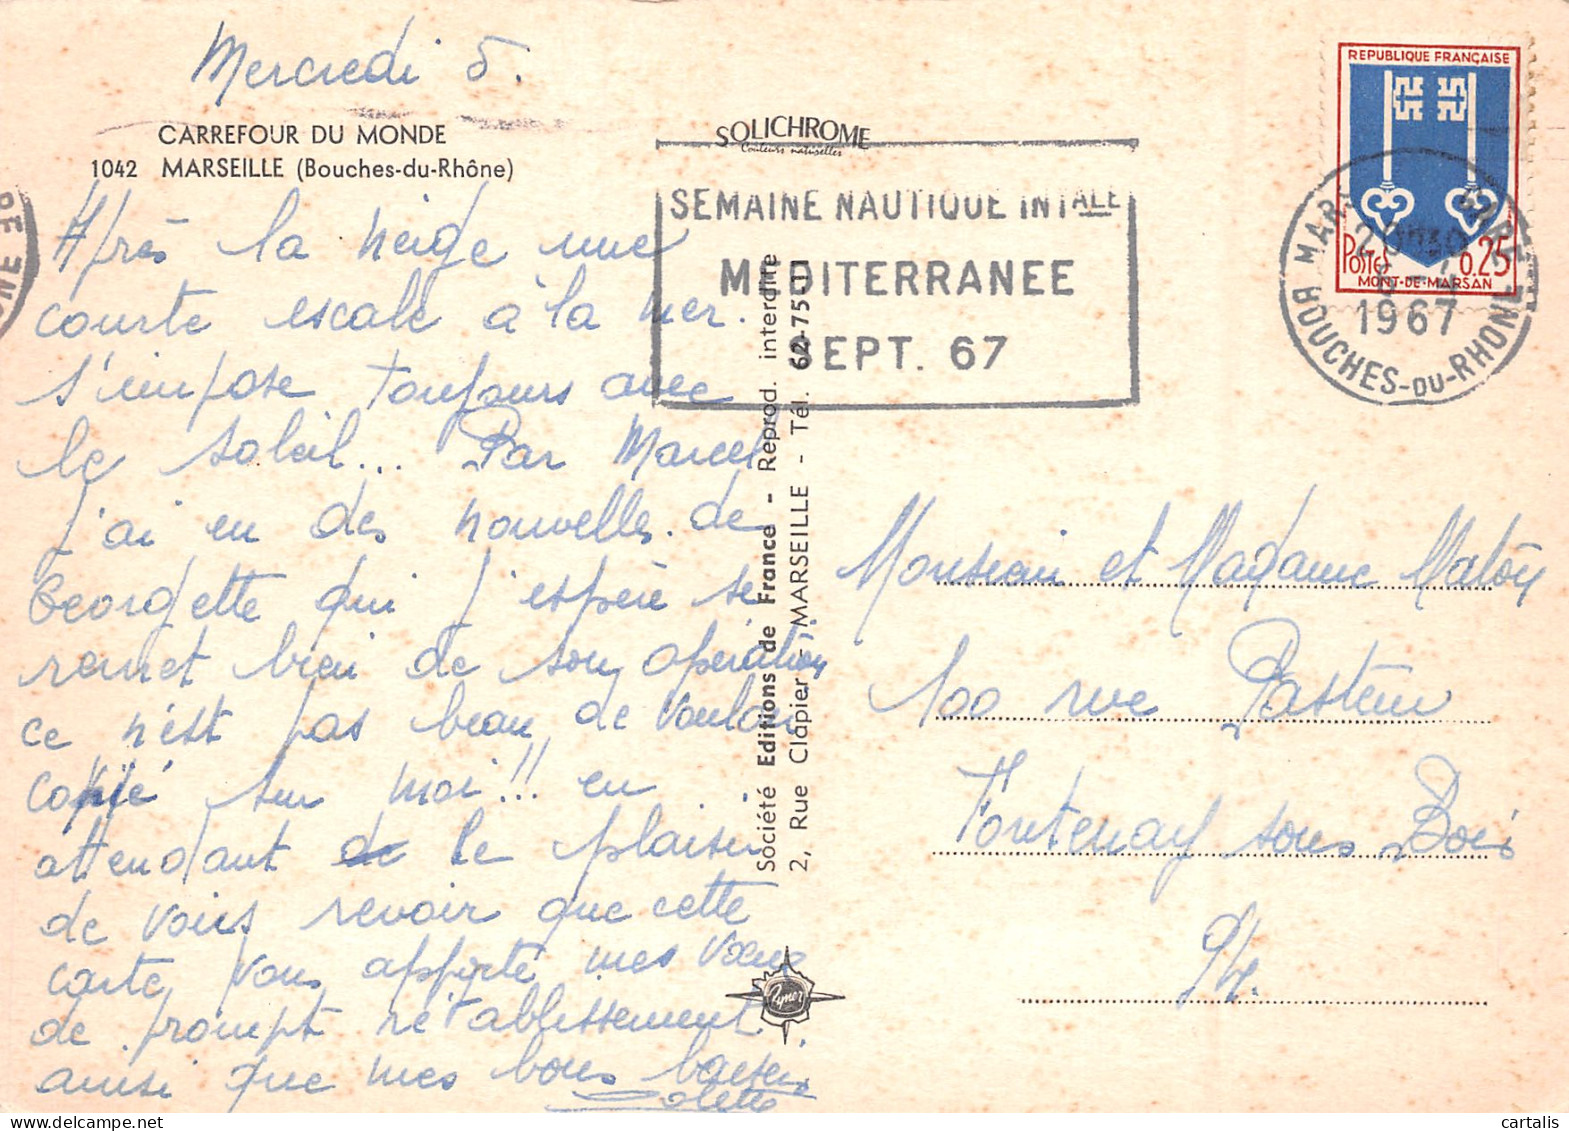 Mercredi 5.
CARREFOUR DU MONDE
1042 MARSEILLE (Bouches-du-Rhône)
Après la neige une
courte escale à la mer.
s'impose toujours avec
le soleil... Par Marcel
j'ai eu des nouvelles de
Georgette qui j'espère se
remet bien de son opération
ce n'est pas beau de vouloir
copié sur moi!!! en
attendant de le plaisir
de vous revoir que cette
carte vous apporte mes vœux
de prompt rétablissement
ainsi que mes bons baisers
SOLICHROME
Couleurs naturelles
SEMAINE NAUTIQUE INTALE
MEDITERRANEE
SEPT. 67
Société Editions de France - Reprod. interdite
2, Rue Clapier - MARSEILLE - Tél. 62-75-11
REPUBLIQUE FRANÇAISE
POSTES 0.25
MONT-DE-MARSAN
MARSEILLE GARE
1967
BOUCHES-DU-RHONE
Monsieur et Madame
100 rue Pasteur
Fontenay sous Bois
94.
cartalis